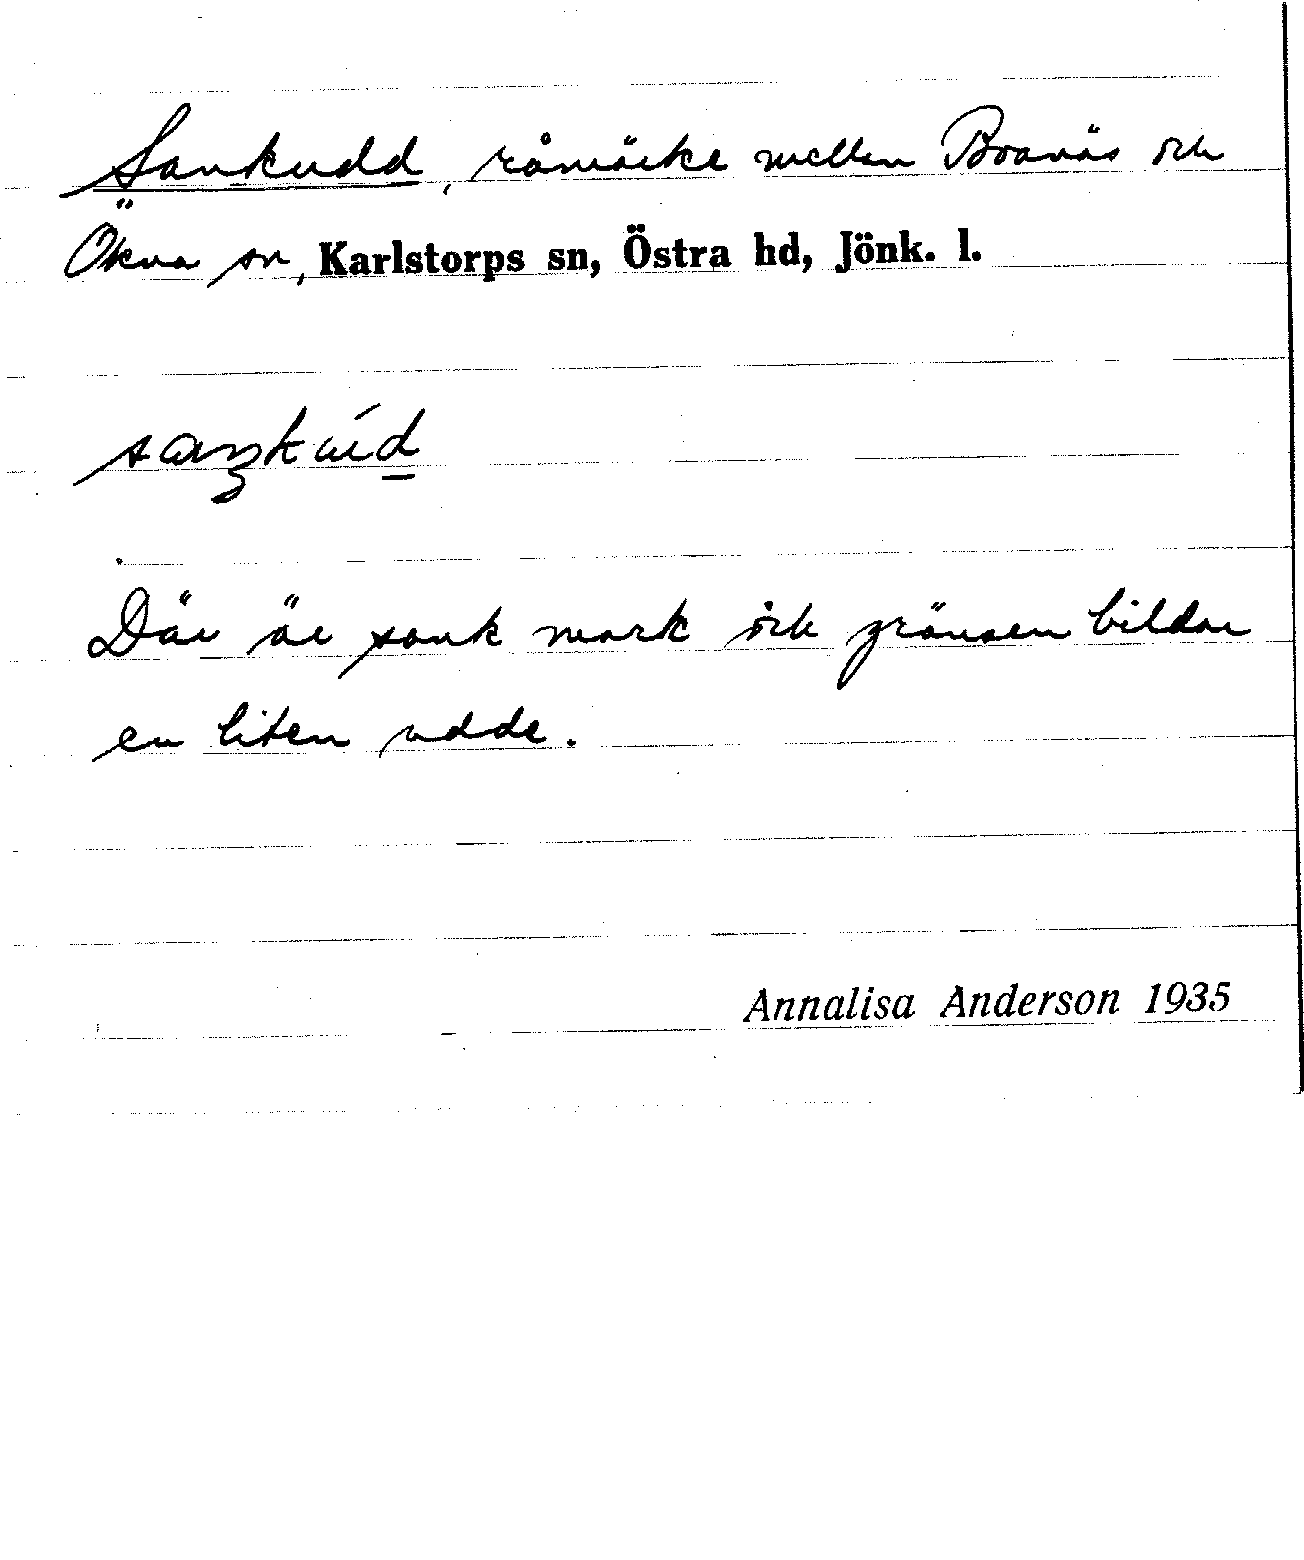 Sankudd, råmärke mellan Boanäs och
Ökna sn, Karlstorps sn, Östra hd, Jönk. l.
saŋkúd
Där är sank mark och gränsen bildar
en liten udde.
Annalisa Anderson 1935